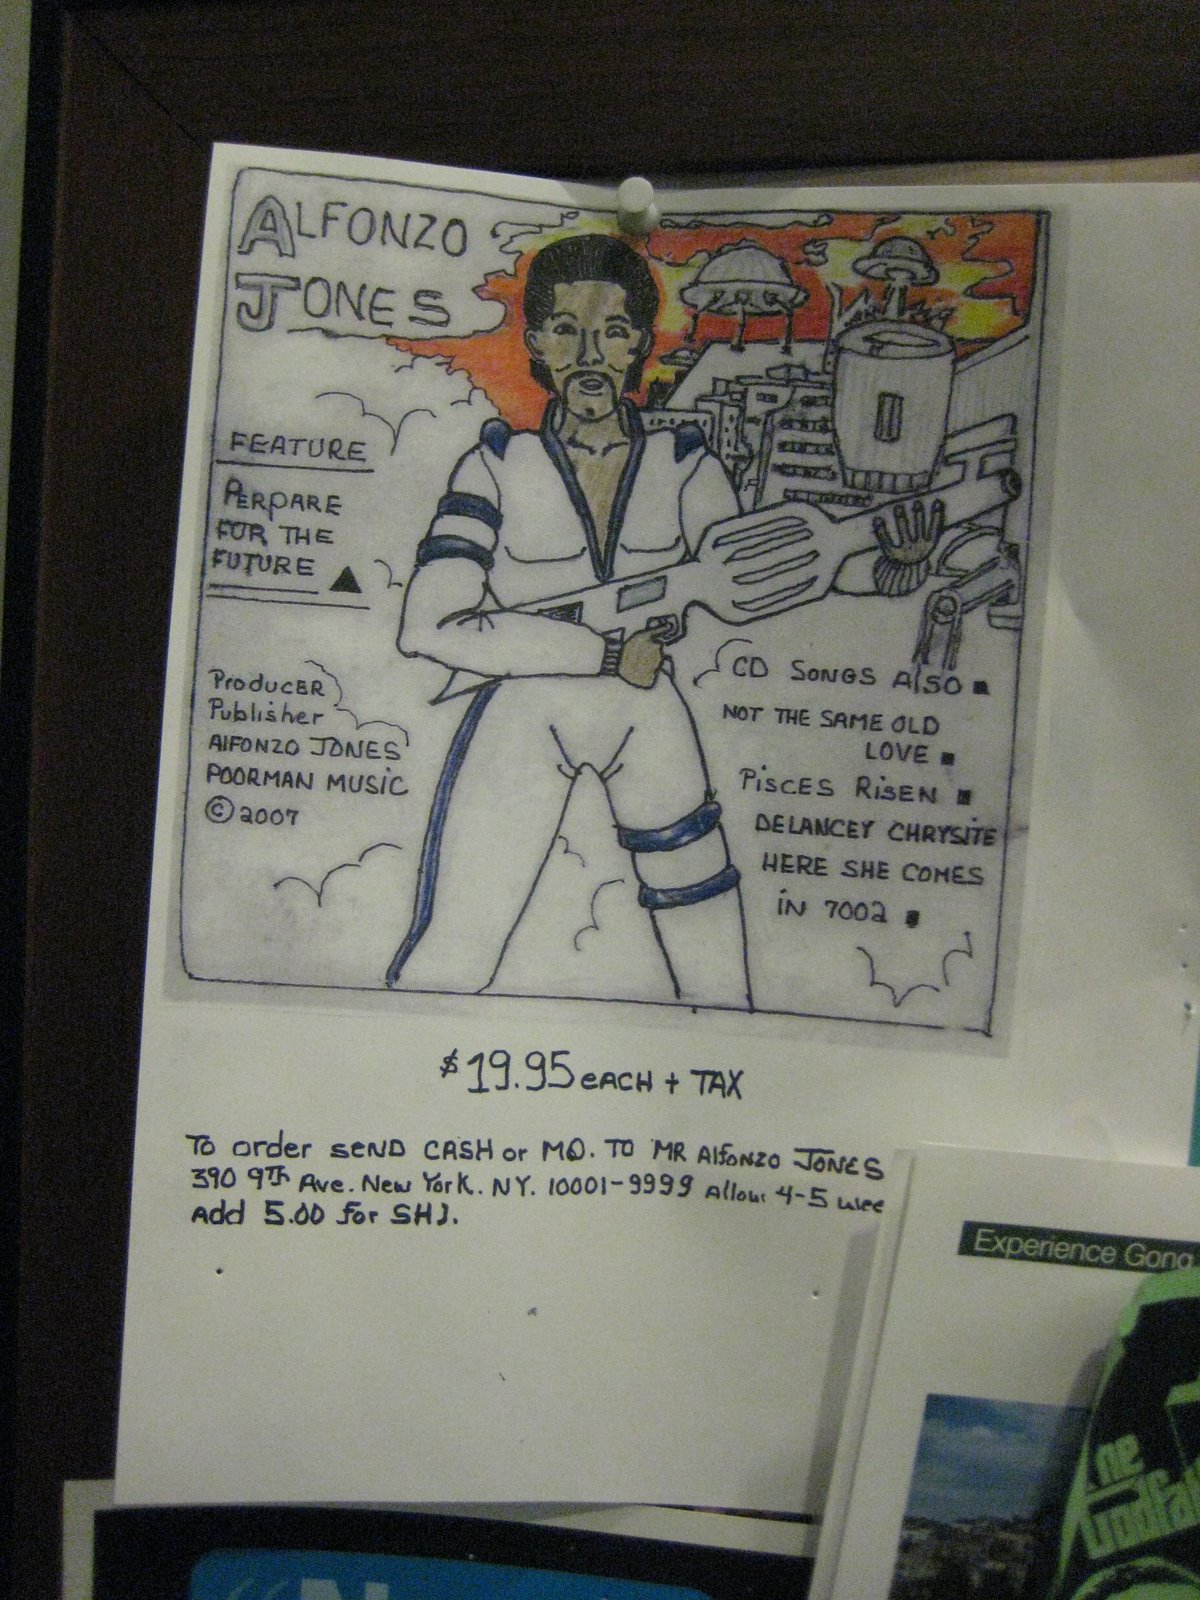 ALFONZO
JONES
FEATURE
PERPARE
FOR THE
FUTURE
ProducER
Publisher
AlFONZO JONES
POORMAN MUSiC
© 2007
CD SONGS AlSO
NOT THE SAME OLD
LOVE
PiSCES RiSEN
DELANCEY CHRYSITE
HERE SHE COMES
iN 7002
$19.95 eACH + TAX
To order seND CASH or MO. TO MR Alfonzo JONES
390 9TH Ave. New York. NY. 10001-9999 Allow 4-5 wee
Add 5.00 for SHJ.
Experience Gong